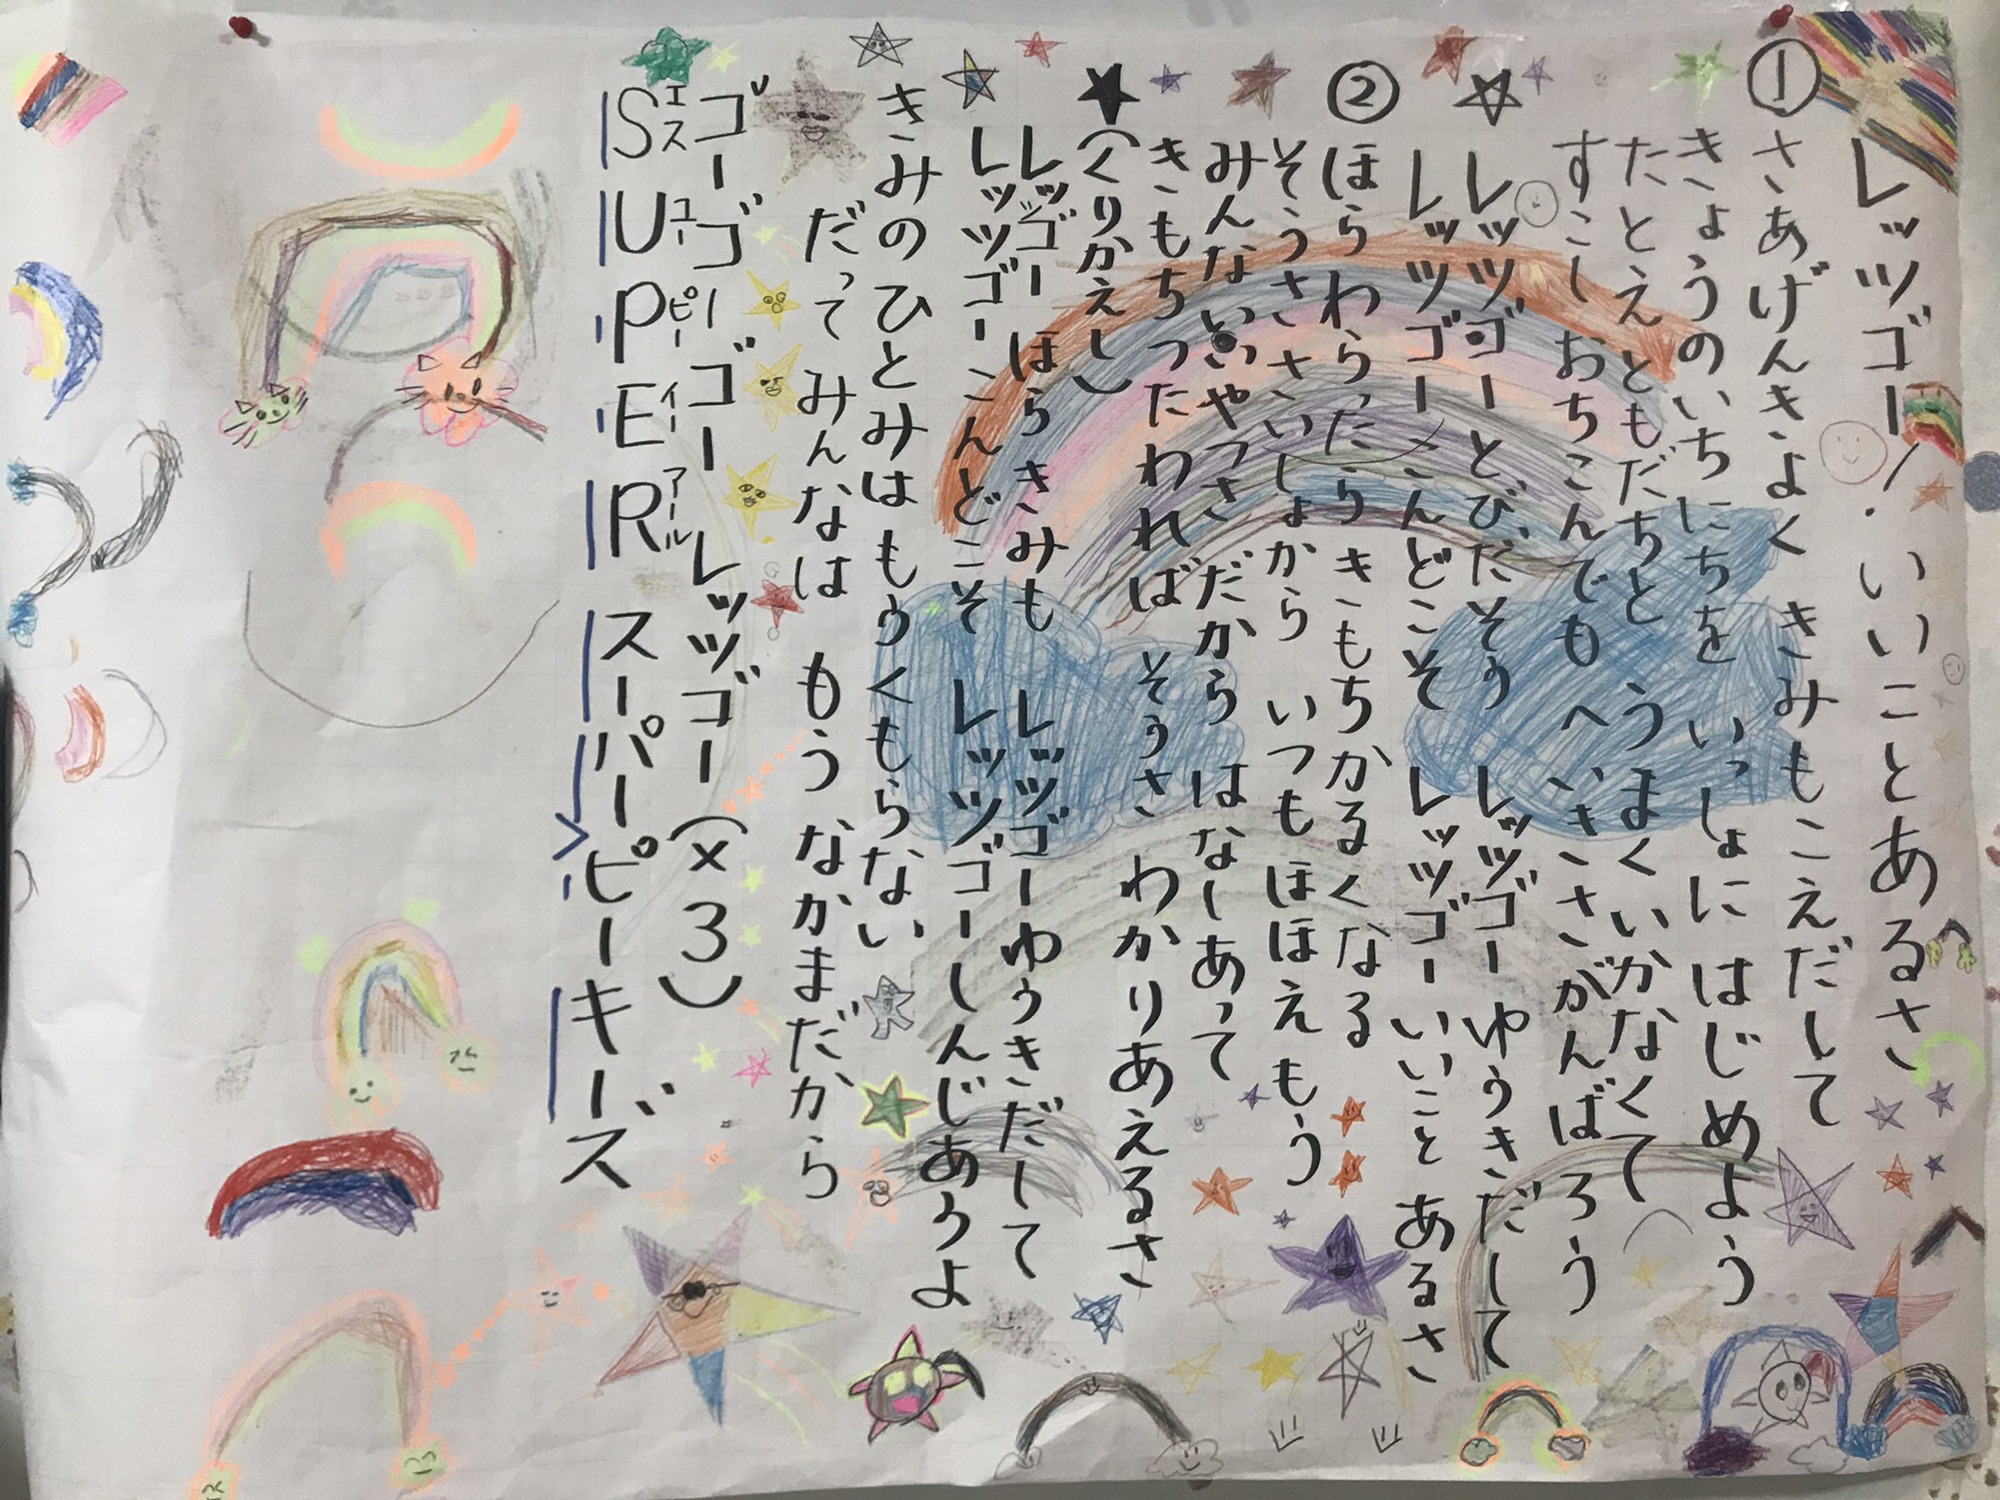 レッツゴー！いいことあるさ
①さあげんきよく きみもこえだして
きょうのいちにちを いっしょに はじめよう
たとえ ともだちと うまく いかなくて
すこし おちこんでも へいきさ がんばろう
☆レッツゴー とびだそう レッツゴー ゆうきだして
レッツゴー こんどこそ レッツゴー いいこと あるさ
②ほら わらったら きもちかるくなる
そうさ さいしょから いつも ほほえもう
みんな いいやつさ だから はなしあって
きもち つたわれば そうさ わかりあえるさ
★(くりかえし)
レッツゴー ほらきみも レッツゴー ゆうきだして
レッツゴー こんどこそ レッツゴー しんじあうよ
きみの ひとみは もうくもらない
だって みんなは もう なかまだから
ゴーゴーゴー レッツゴー (×3)
SUPER スーパーピーキーズ
エス ユー ピー イー アール